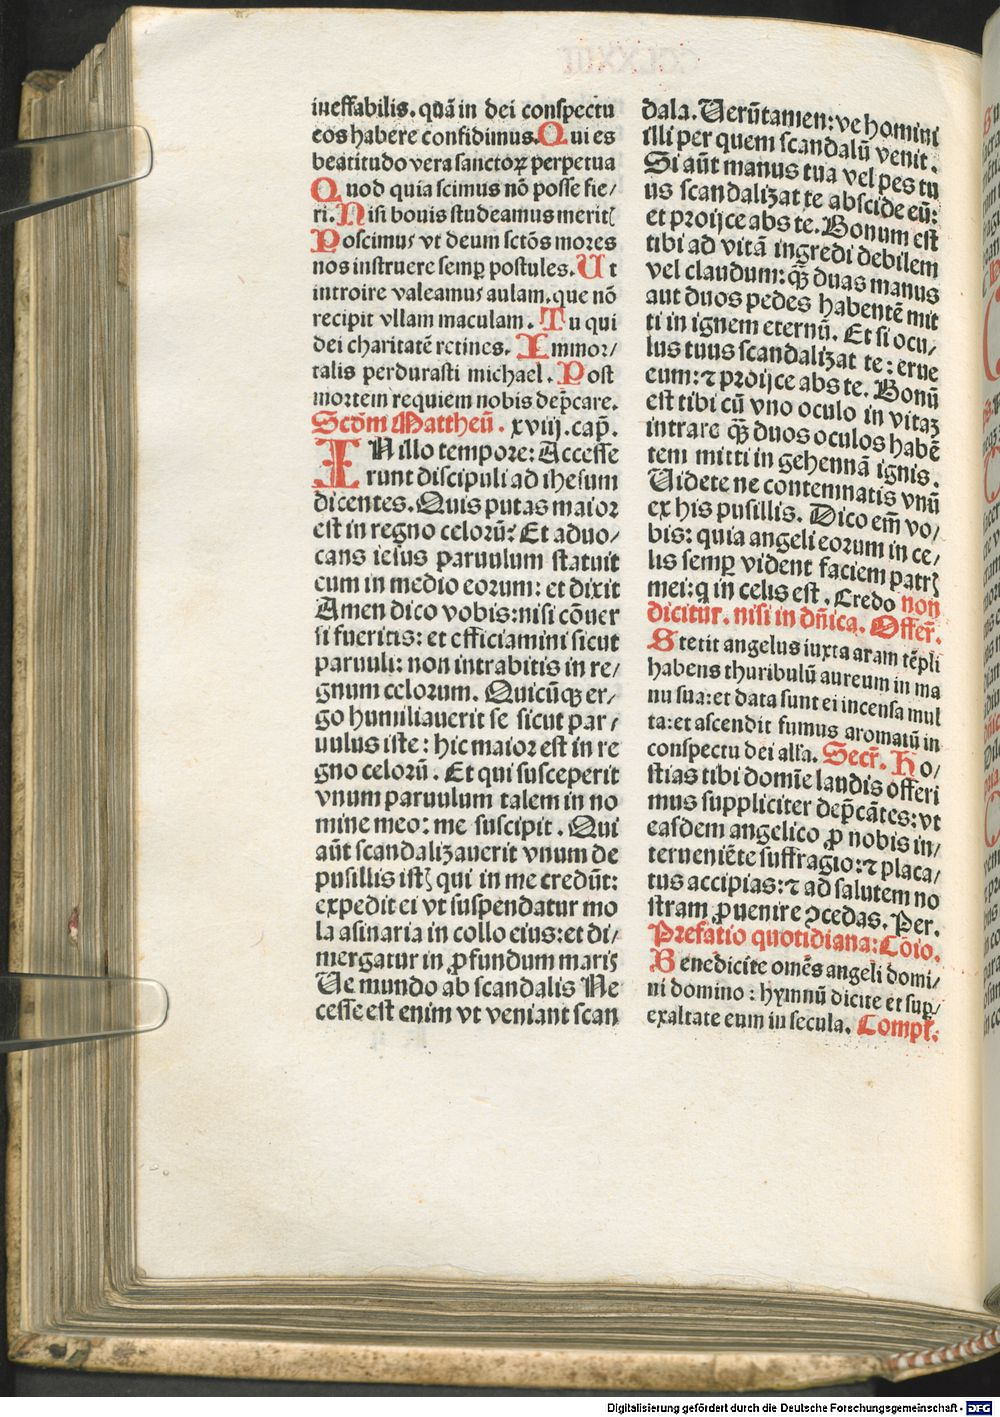 ineffabilis. quā in dei conspectu
eos habere confidimus. Qui es
beatitudo vera sanctoꝝ perpetua
Quod quia scimus nō posse fie/
ri. Nisi bonis studeamus meritꝭ
Poscimus vt deum sctōs mores
nos instruere semꝑ postules. Ut
introire valeamus aulam. que nō
recipit vllam maculam. Tu qui
dei charitatē retines. Immor/
talis perdurasti michael. Post
mortem requiem nobis dep̄care.
Scdm̄ Mattheū. xviij. cap̄.
IN illo tempore: Accesse
runt discipuli ad ihesum
dicentes. Quis putas maior
est in regno celorū? Et aduo/
cans iesus paruulum statuit
eum in medio eorum: et dixit
Amen dico vobis: nisi cōuer
si fueritis: et efficiamini sicut
paruuli: non intrabitis in re/
gnum celorum. Quicūqꝫ er/
go humiliauerit se sicut par/
uulus iste: hic maior est in re
gno celorū. Et qui susceperit
vnum paruulum talem in no
mine meo: me suscipit. Qui
aūt scandalizauerit vnum de
pusillis istꝭ qui in me credūt:
expedit ei vt suspendatur mo
la asinaria in collo eius: et di/
mergatur in ꝓfundum maris
Ue mundo ab scandalis Ne
cesse est enim vt veniant scan
dala. Uerūtamen: ve homini
illi per quem scandalū venit.
Si aūt manus tua vel pes tu
us scandalizat te abscide eū:
et proijce abs te. Bonum est
tibi ad vitā ingredi debilem
vel claudum: qꝫ̄ duas manus
aut duos pedes habentē mit
ti in ignem eternū. Et si ocu/
lus tuus scandalizat te: erue
eum: ⁊ proijce abs te. Bonū
est tibi cū vno oculo in vitaꝫ
intrare qꝫ̄ duos oculos habē
tem mitti in gehennā ignis.
Uidete ne contemnatis vnū
ex his pusillis. Dico em̄ vo/
bis: quia angeli eorum in ce/
lis semꝑ vident faciem patrꝭ
mei: q in celis est. Credo non
dicitur. nisi in dn̄ica. Offer̄.
Stetit angelus iuxta aram tēpli
habens thuribulū aureum in ma
nu sua: et data sunt ei incensa mul
ta: et ascendit fumus aromatū in
conspectu dei alľa. Secr̄. Ho/
stias tibi domīe laudis offeri
mus suppliciter dep̄cātes: vt
easdem angelico ꝓ nobis in/
terueniēte suffragio: ⁊ placa/
tus accipias: ⁊ ad salutem no
stram ꝓuenire ꝯcedas. Per.
Prefatio quotidiana: Cōio.
Benedicite omēs angeli domi/
ni domino: hymnū dicite et suꝑ/
exaltate eum in secula. Compľ.
Digitalisierung gefördert durch die Deutsche Forschungsgemeinschaft - DFG